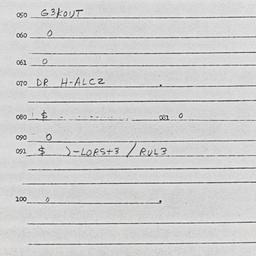 050 G3KOUT
060 0
061 0
070 DR H-ALC2
080 $ 081 0
090 0
091 $ )-LORS+3 / RUL3
100 0